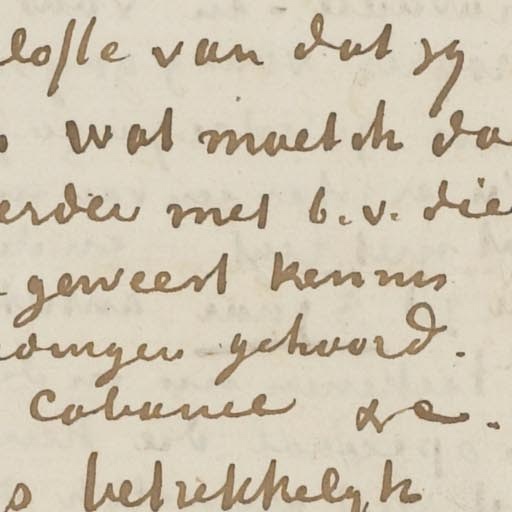 losse van dat zy
wat moet ik da
erder met b.v. die
geweest kennis
oningen gehoord.
Cabanel &c.
s betrekkelyk